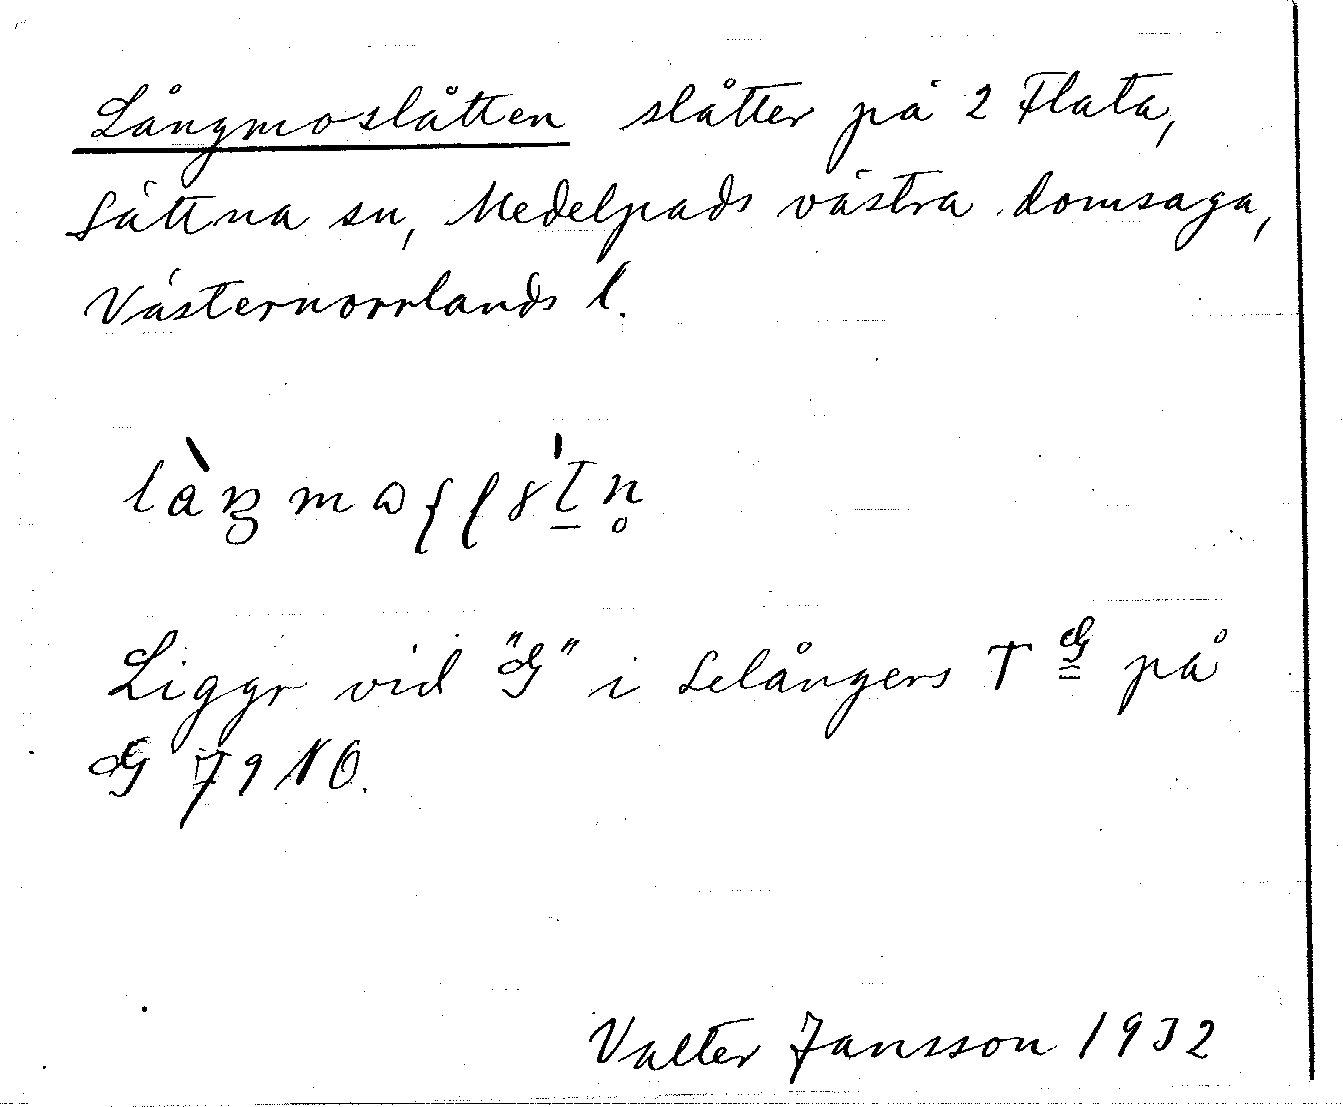 Långmoslåtten slåtter på 2 Flata,
Sättna sn, Medelpads västra domsaga,
Västernorrlands l.
Liggr vid "G" i Selångers T G på
G 79 NO.
Valter Jansson 1932